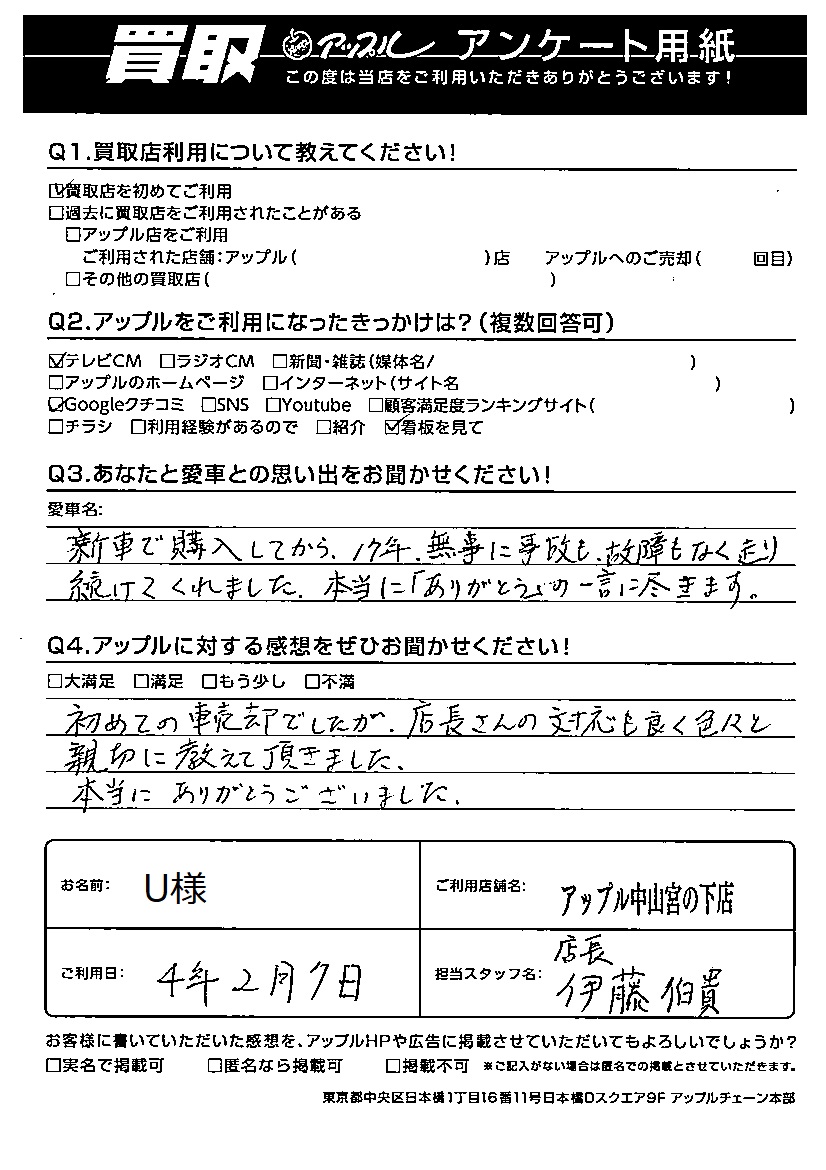 買取 アップル アンケート用紙
この度は当店をご利用いただきありがとうございます!
Q1.買取店利用について教えてください!
☑買取店を初めてご利用
□過去に買取店をご利用されたことがある
□アップル店をご利用
ご利用された店舗:アップル( )店 アップルへのご売却( 回目)
□その他の買取店( )
Q2.アップルをご利用になったきっかけは?(複数回答可)
☑テレビCM □ラジオCM □新聞・雑誌(媒体名/ )
□アップルのホームページ □インターネット(サイト名 )
☑Googleクチコミ □SNS □Youtube □顧客満足度ランキングサイト( )
□チラシ □利用経験があるので □紹介 ☑看板を見て
Q3.あなたと愛車との思い出をお聞かせください!
愛車名:
新車で購入してから、17年、無事に事故も、故障もなく走り
続けてくれました。本当に「ありがとう」の一言に尽きます。
Q4.アップルに対する感想をぜひお聞かせください!
□大満足 □満足 □もう少し □不満
初めての車売却でしたが、店長さんの対応も良く色々と
親切に教えて頂きました、
本当にありがとうございました。
お名前: U様
ご利用店舗名: アップル中山宮の下店
ご利用日: 4年2月7日
担当スタッフ名: 店長
伊藤伯貴
お客様に書いていただいた感想を、アップルHPや広告に掲載させていただいてもよろしいでしょうか?
□実名で掲載可 □匿名なら掲載可 □掲載不可 ※ご記入がない場合は匿名での掲載とさせていただきます。
東京都中央区日本橋1丁目16番11号日本橋Dスクエア9F アップルチェーン本部